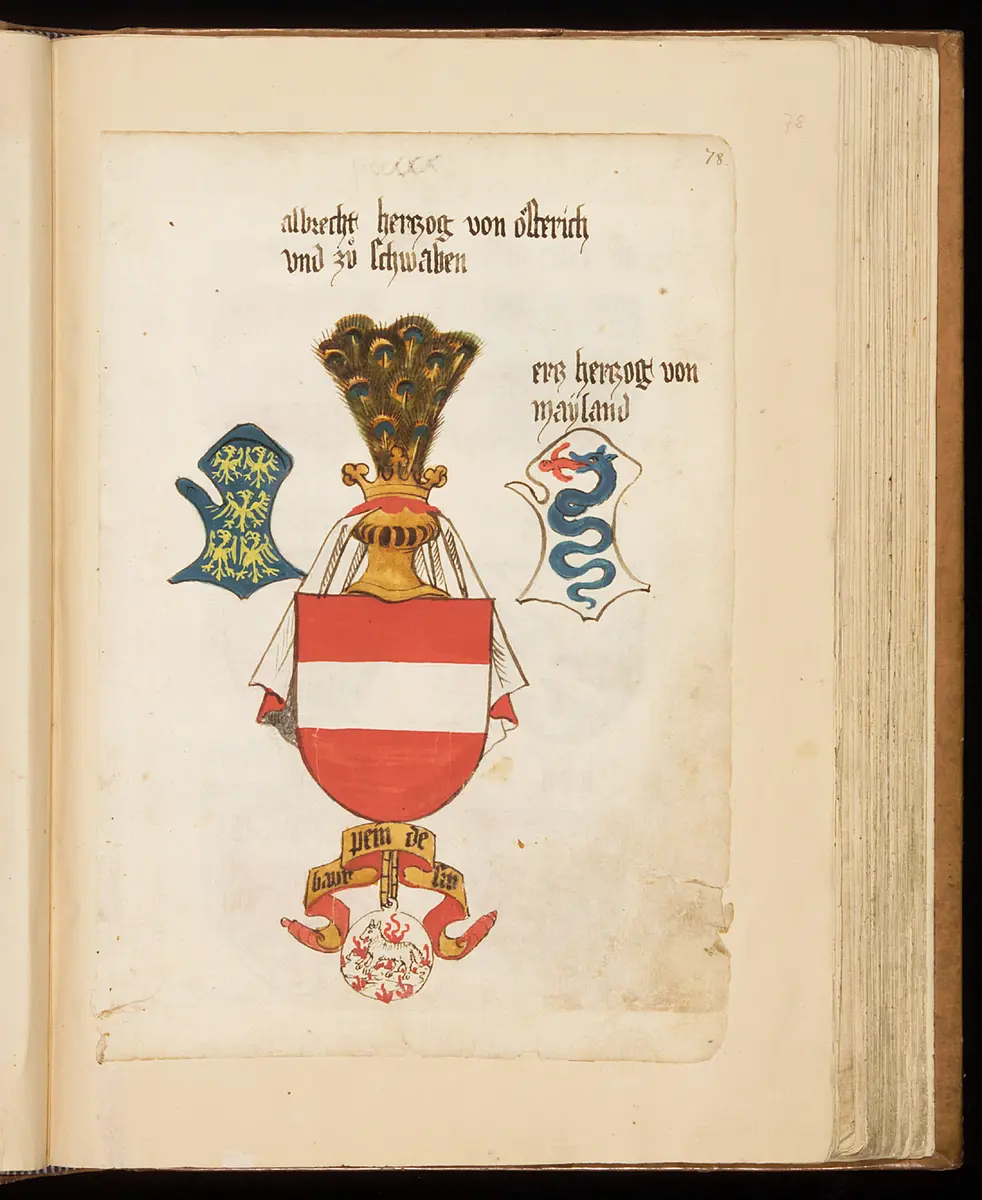 78
78
albrecht hertzog von österich
vnd zů schwaben
ertz hertzog von
maÿland
pem de